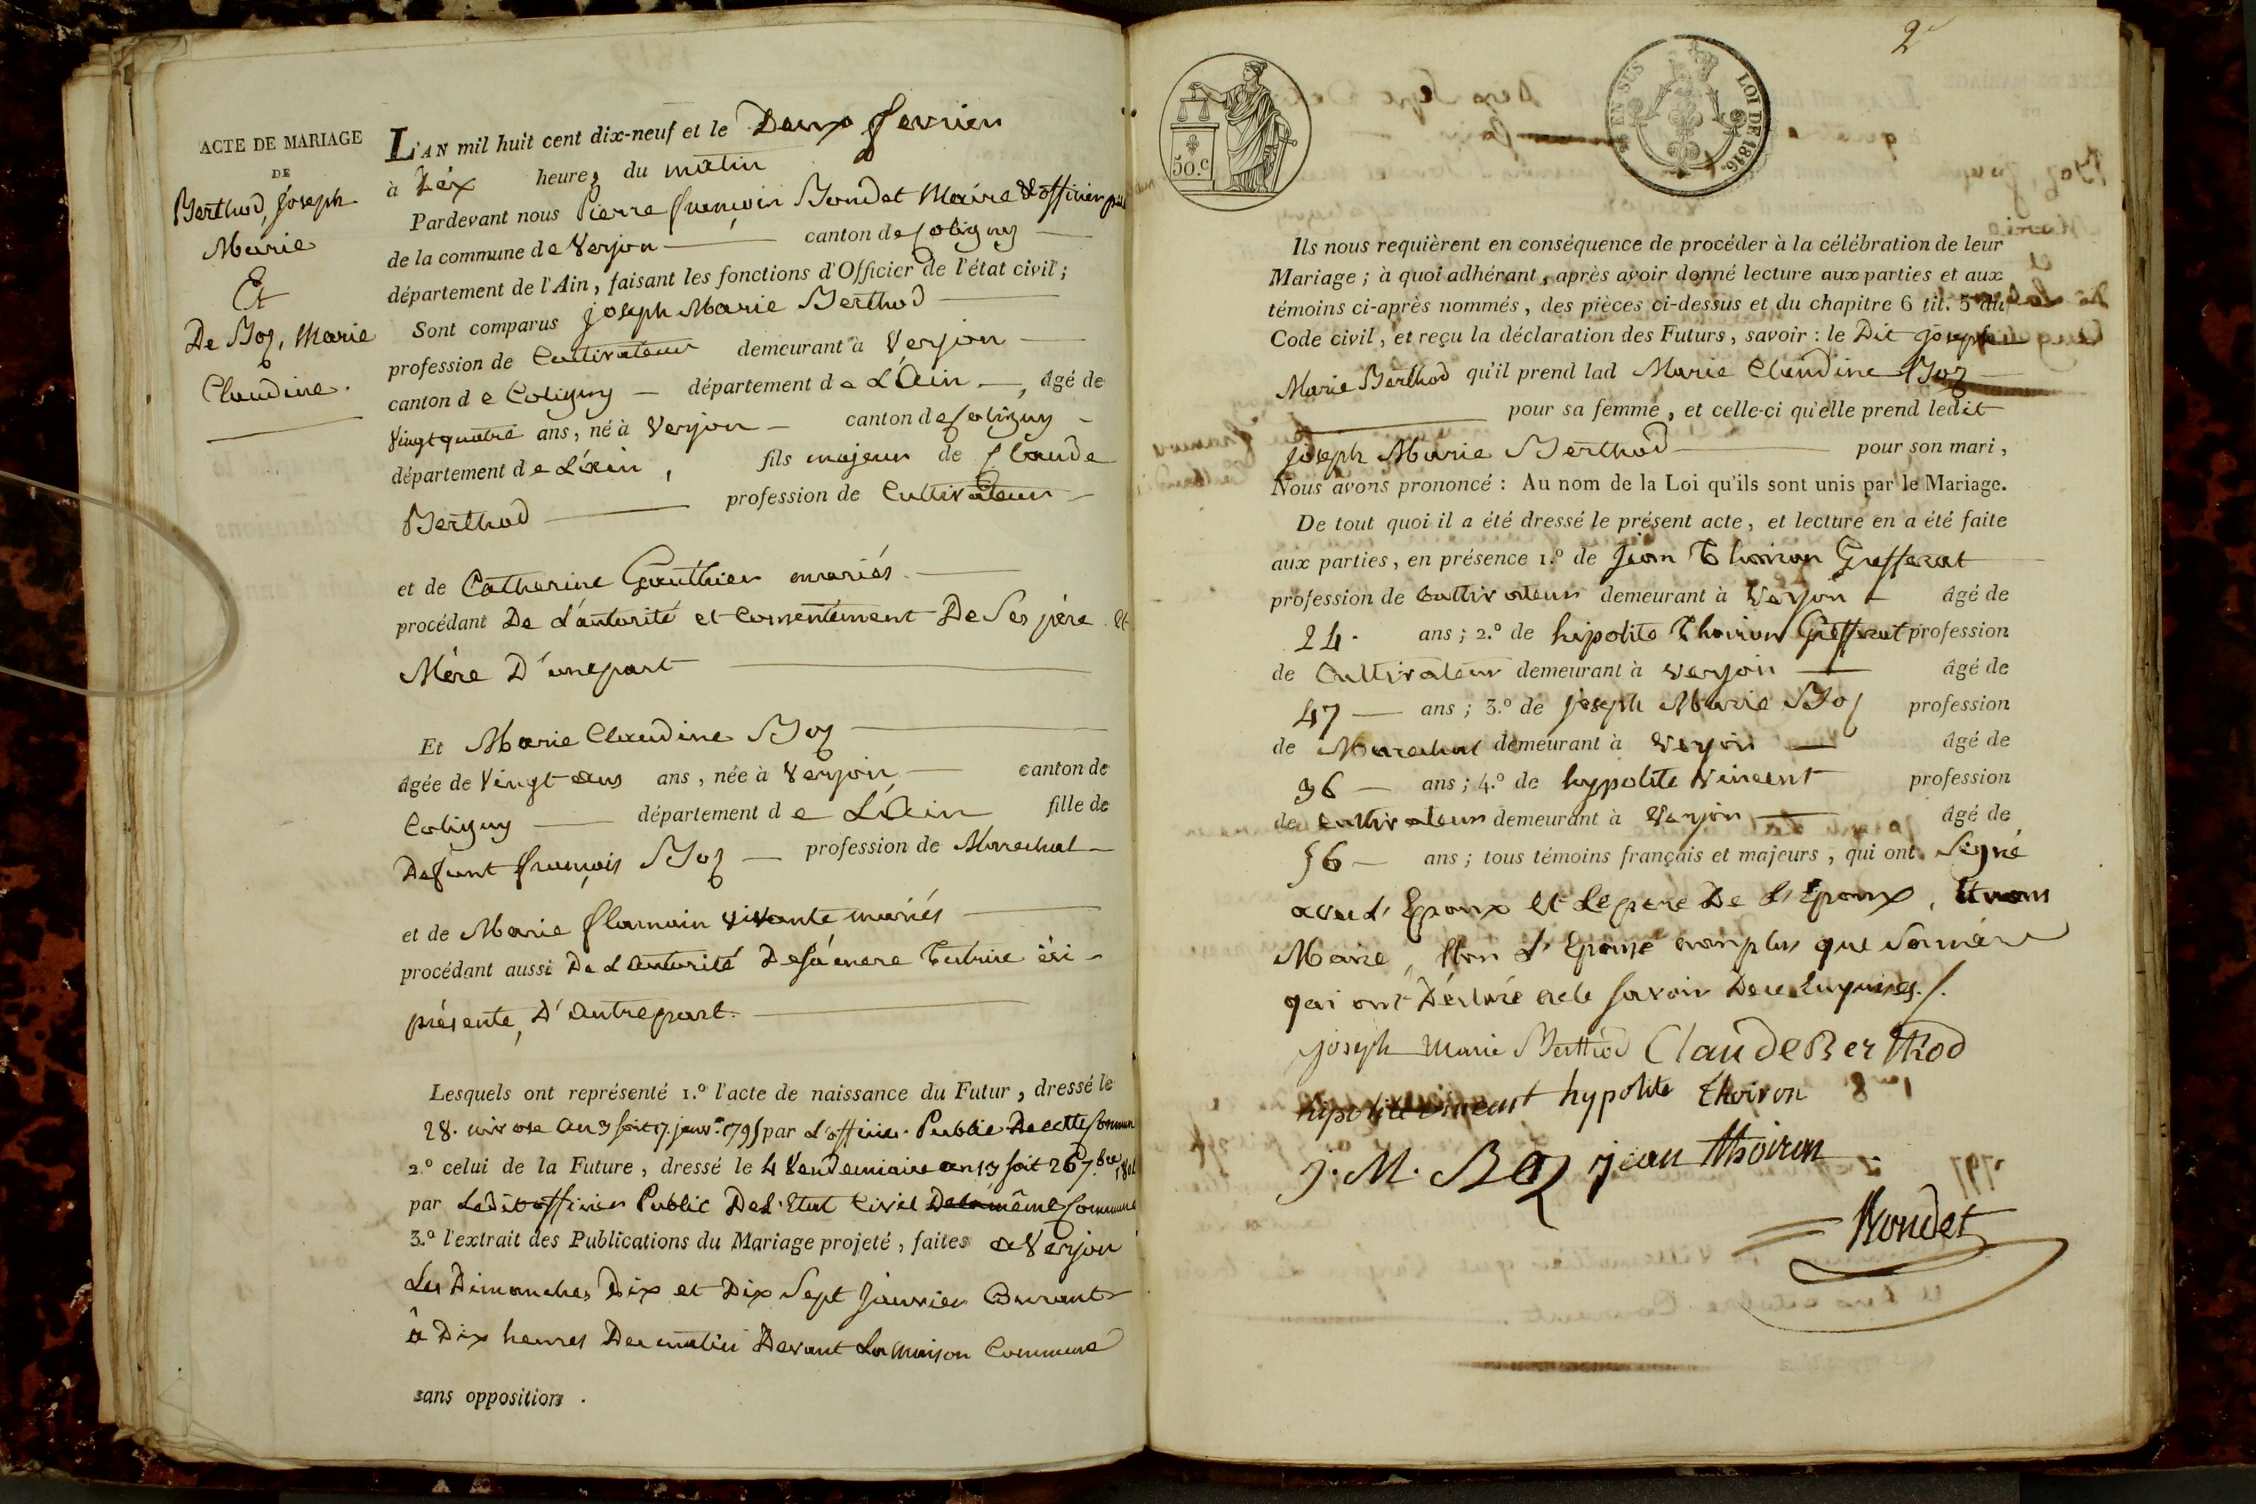 ACTE DE MARIAGE
DE
Berthod, joseph
Marie
Et
De Boz, Marie
Claudine.
L'AN mil huit cent dix-neuf et le Deux fevrier
à Dix heures du matin
Pardevant nous Pierre françois Bondet Maire & officier
de la commune de Verjon canton de Coligny
département de l'Ain, faisant les fonctions d'Officier de l'état civil;
Sont comparus joseph Marie Berthod
profession de Cultivateur demeurant à Verjon
canton de Coligny département de L'Ain, âgé de
Vingt quatre ans, né à Verjon canton de Coligny
département de L'ain, fils majeur de Claude
Berthod profession de Cultivateur
et de Catherine Gauthier mariés
procédant De L'autorité et Consentement De Ses père et
Mère D'une part
Et Marie Claudine Boz
âgée de Vingt ans ans, née à Verjon canton de
Coligny département de L'Ain fille de
Defunt françois Boz profession de Marechal
et de Marie flamain vivante mariés
procédant aussi De L'autorité De sa mere Tutrice ici
présente, D'autre part.
Lesquels ont représenté 1.º l'acte de naissance du Futur, dressé le
28. nivose an 3 soit 17. janv. 1795 par L'officier Public De cette Commune
2.º celui de la Future, dressé le 4 Vendemiaire an 13 soit 26 7.bre
par Ledit officier Public De L'Etat Civil De la même Commune
3.º l'extrait des Publications du Mariage projeté, faites a Verjon
Les Dimanches Dix et Dix Sept Janvier Courant
à Dix heures Du matin Devant La maison Commune
sans opposition.
2e
50.c
EN SUS LOI DE 1816
Ils nous requièrent en conséquence de procéder à la célébration de leur
Mariage; à quoi adhérant, après avoir donné lecture aux parties et aux
témoins ci-après nommés, des pièces ci-dessus et du chapitre 6 tit. 5 du
Code civil, et reçu la déclaration des Futurs, savoir: le Dit joseph
Marie Berthod qu'il prend lad Marie Claudine Boz
pour sa femme, et celle-ci qu'elle prend ledit
joseph Marie Berthod pour son mari,
Nous avons prononcé: Au nom de la Loi qu'ils sont unis par le Mariage.
De tout quoi il a été dressé le présent acte, et lecture en a été faite
aux parties, en présence 1.º de Jean Thoiron Grefferat
profession de Cultivateur demeurant à Verjon âgé de
24. ans; 2.º de hipolite Thoiron Grefferat profession
de Cultivateur demeurant à Verjon âgé de
47 ans; 3.º de joseph Marie Boz profession
de Marechal demeurant à Verjon âgé de
36 ans; 4.º de hypolite Vincent profession
de Cultivateur demeurant à Verjon âgé de
56 ans; tous témoins français et majeurs, qui ont Signé
avec L'Epoux et Le pere De L'Epoux, et nous
Maire, Non L'Epouse non plus que Sa mere
qui ont Déclaré ne le Savoir De ce Enquises./.
joseph marie Berthod Claude Berthod
hipolite vincent hypolite thoiron
J. M. Boz jean thoiron
Bondet